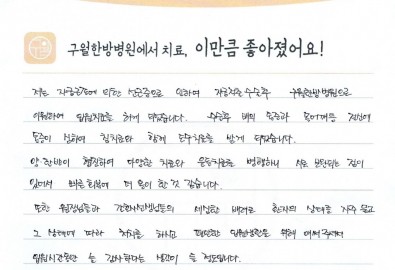 구월한방병원에서 치료, 이만큼 좋아졌어요!
저는 자궁근종에 의한 선근증으로 인하여 자궁적출 수술후 구월한방병원으로
입원하여 입원치료를 하게 되었습니다. 수술후 배의 통증과 전신에
통증이 심하여 침치료와 함께 도수치료를 받게 되었습니다.
양·한방이 협진하여 다양한 치료와 운동치료를 병행하니 서로 보완되는 점이
있어서 빠른 회복에 더 도움이 된 것 같습니다.
또한 원장님들과 간호사선생님들의 세심한 배려로 환자의 상태를 자주 묻고
그 상태에 따라 처치를 하시고 편안한 입원생활을 위해 애써주셔서
입원시간동안 늘 감사하다는 생각이 들 정도입니다.